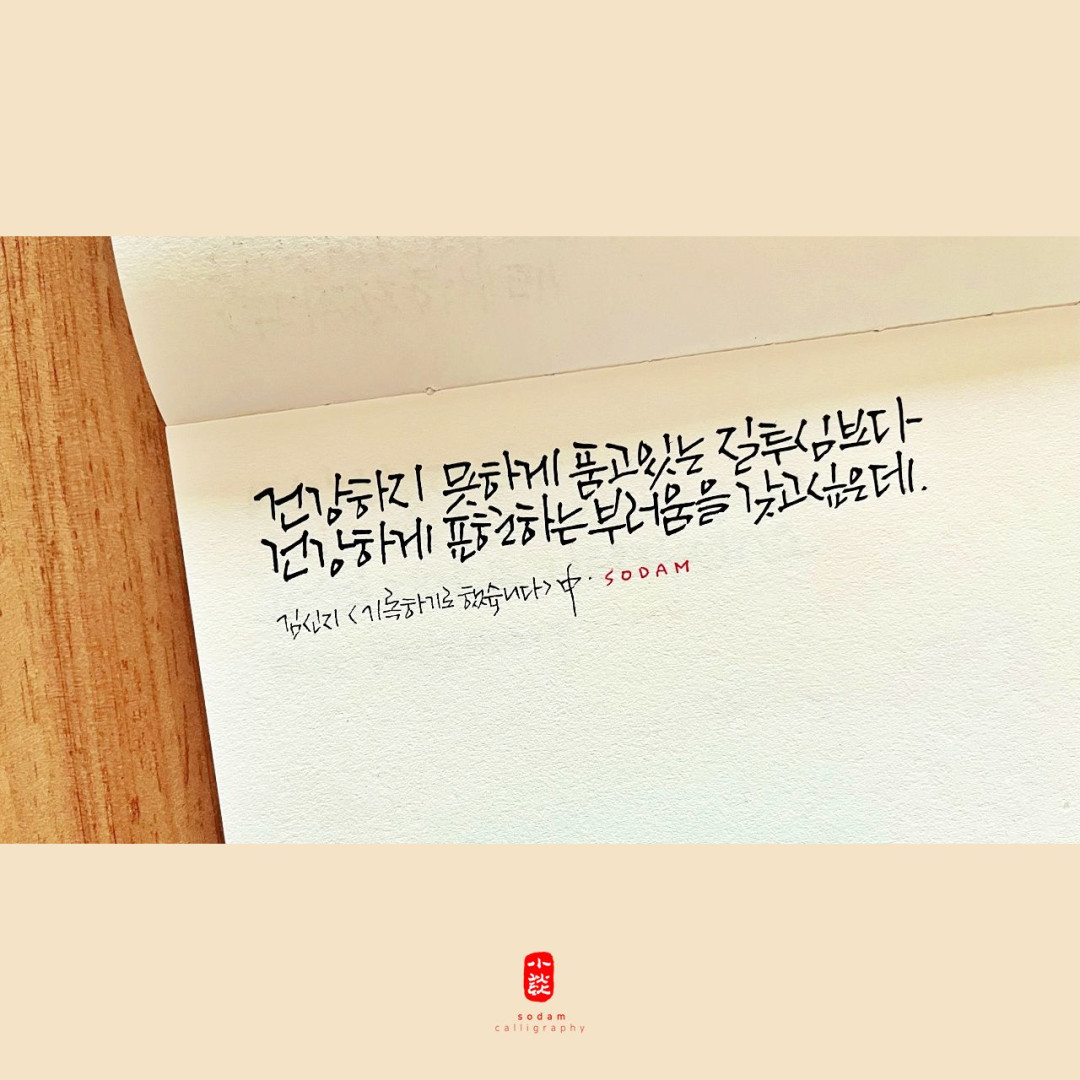 건강하지 못하게 품고있는 질투심보다
건강하게 표현하는 부러움을 갖고싶은데.
김신지 <기록하기로 했습니다> 中. SODAM
小
談
sodam
calligraphy